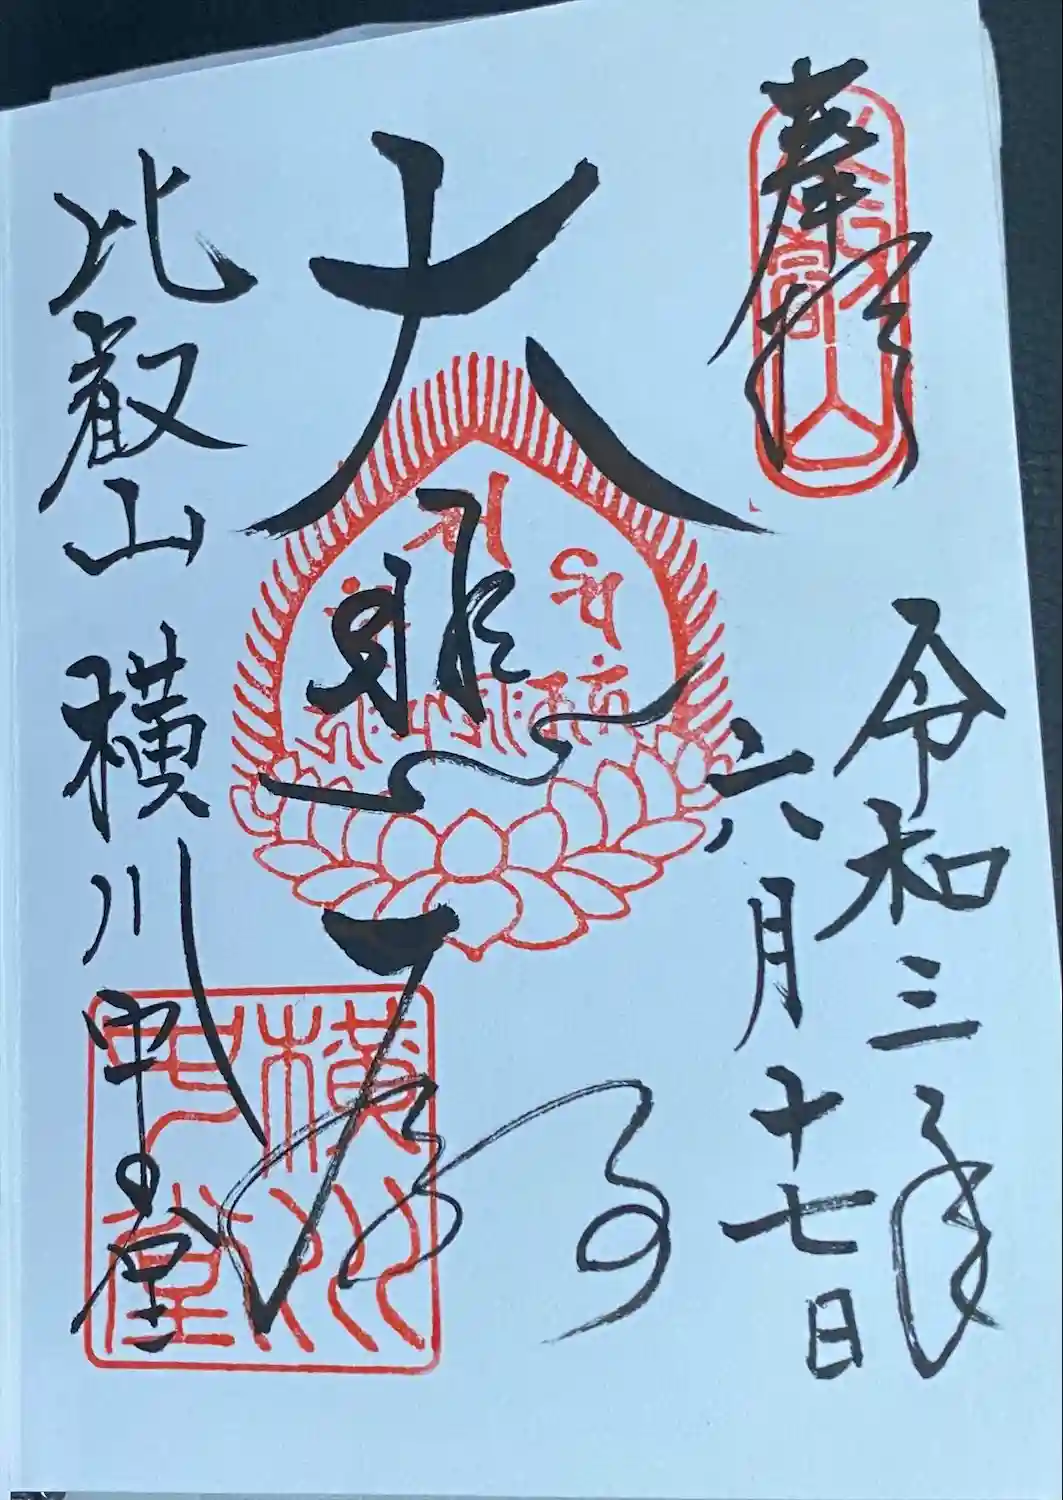 奉拝
令和三年
六月十七日
大悲殿
比叡山 横川中堂
横川
中堂